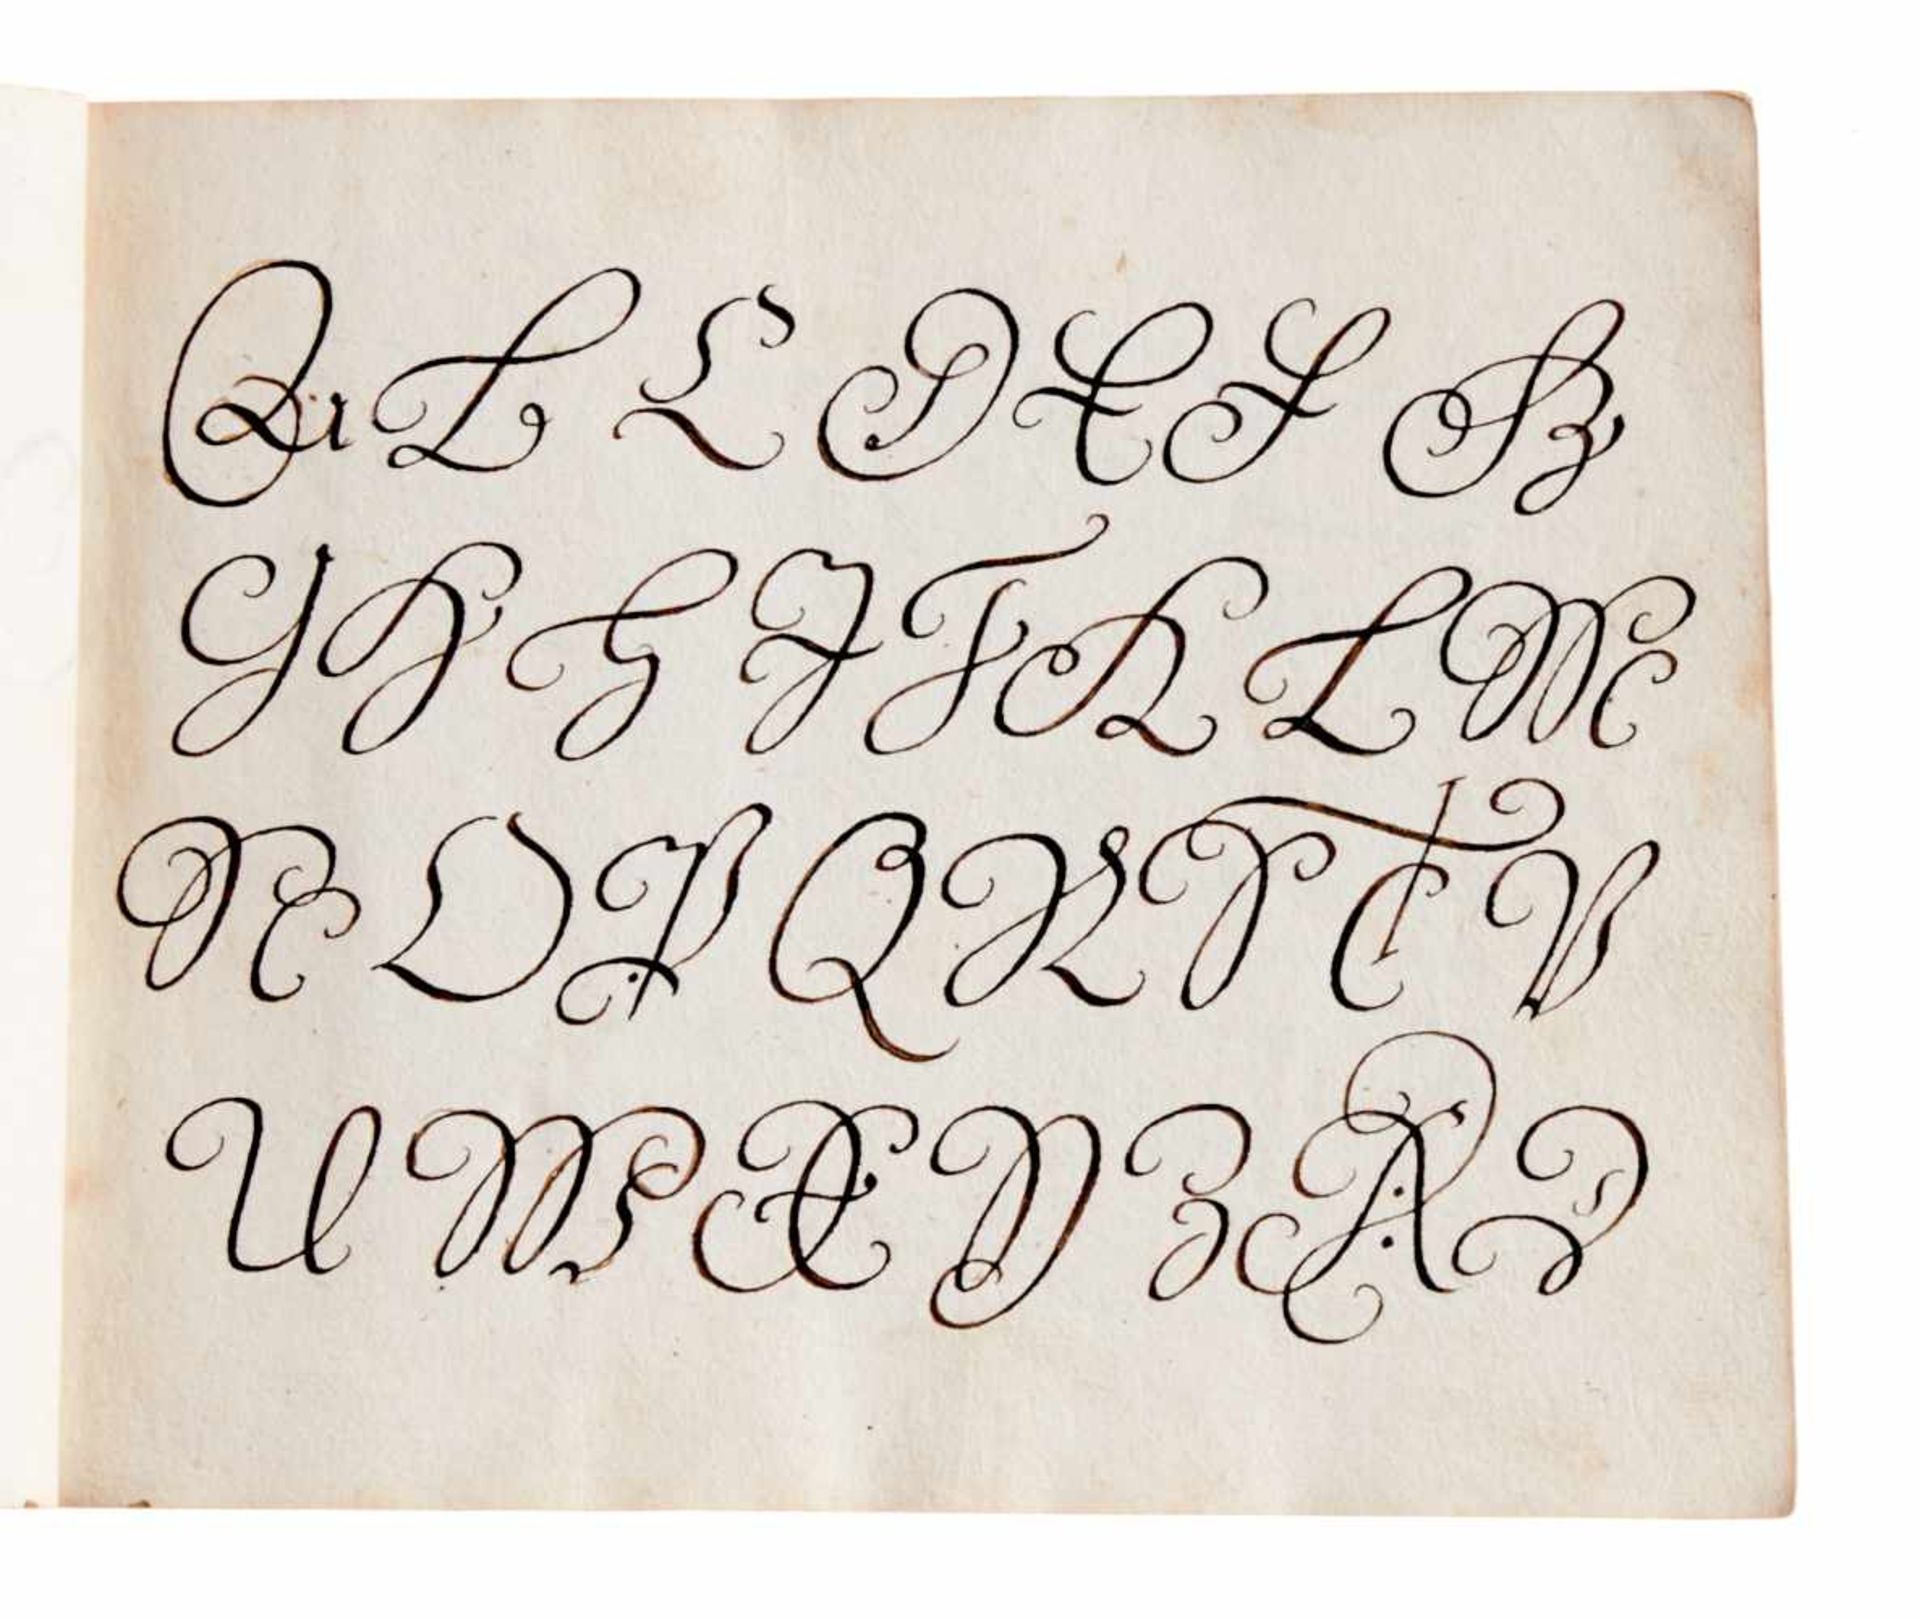 A L C D E F B
G H H I J K L M
N O P Q R S T V
U W X Y Z A Z